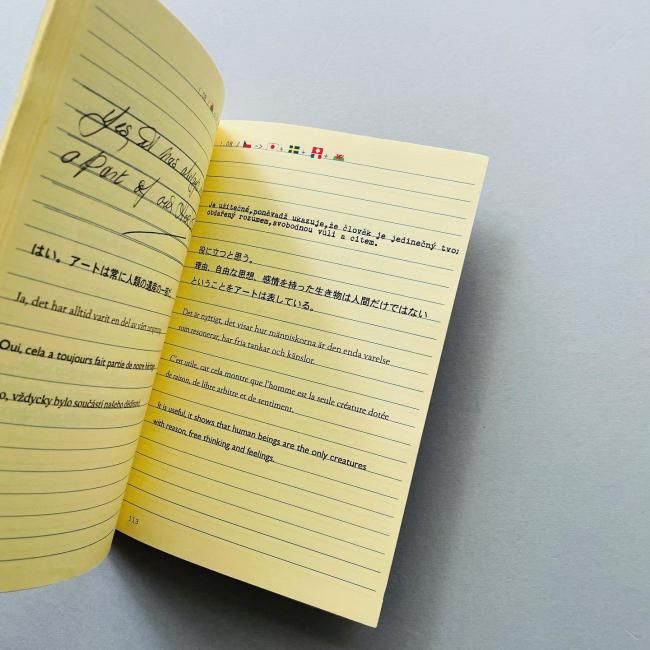 Yes, it has always
a part of our
はい。アートは常に人類の遺産の一部
Ja, det har alltid varit en del av vårt
Oui, cela a toujours fait partie de notre
vždycky bylo součástí našeho dědictví
1.08 / ->  +  +  +
Je užitečné,poněvadž ukazuje,že člověk je jedinečný
obdařený rozumem,svobodnou vůlí a citem.
役に立つと思う。
理由、自由な思想、感情を持った生き物は人間だけではない
ということをアートは表している。
Det är nyttigt, det visar hur människorna är den enda varelse
som resonerar, har fria tankar och känslor.
C'est utile, car cela montre que l'homme est la seule créature dotée
de raison, de libre arbitre et de sentiment.
It is useful, it shows that human beings are the only creatures
with reason, free thinking and feelings.
113